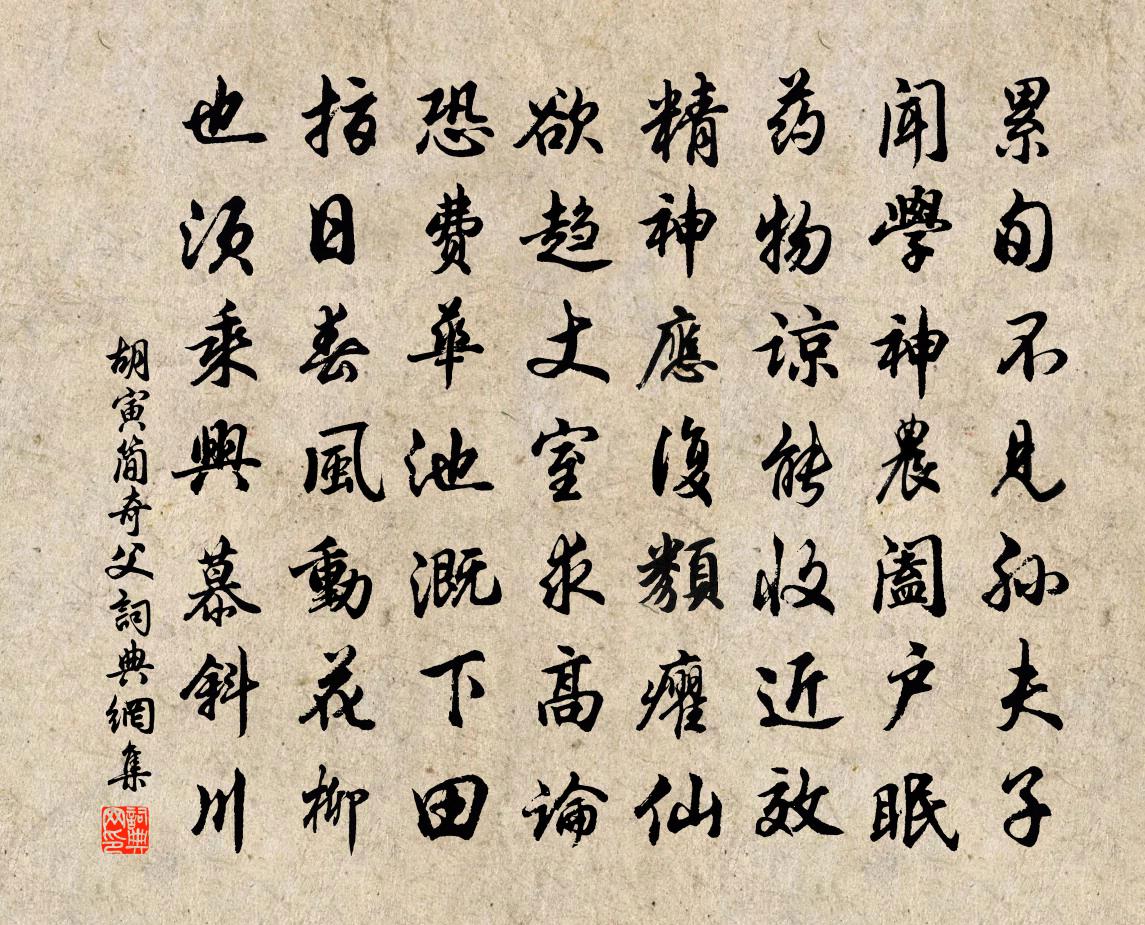 累旬不见孙夫子
闻學神農阖户眠
药物谅能收近效
精神應復類癯仙
欲趋丈室求高論
恐费華池溉下田
指日春風動花柳
也须乘興慕斜川
胡寅简奇父詞典網集
詞典网印